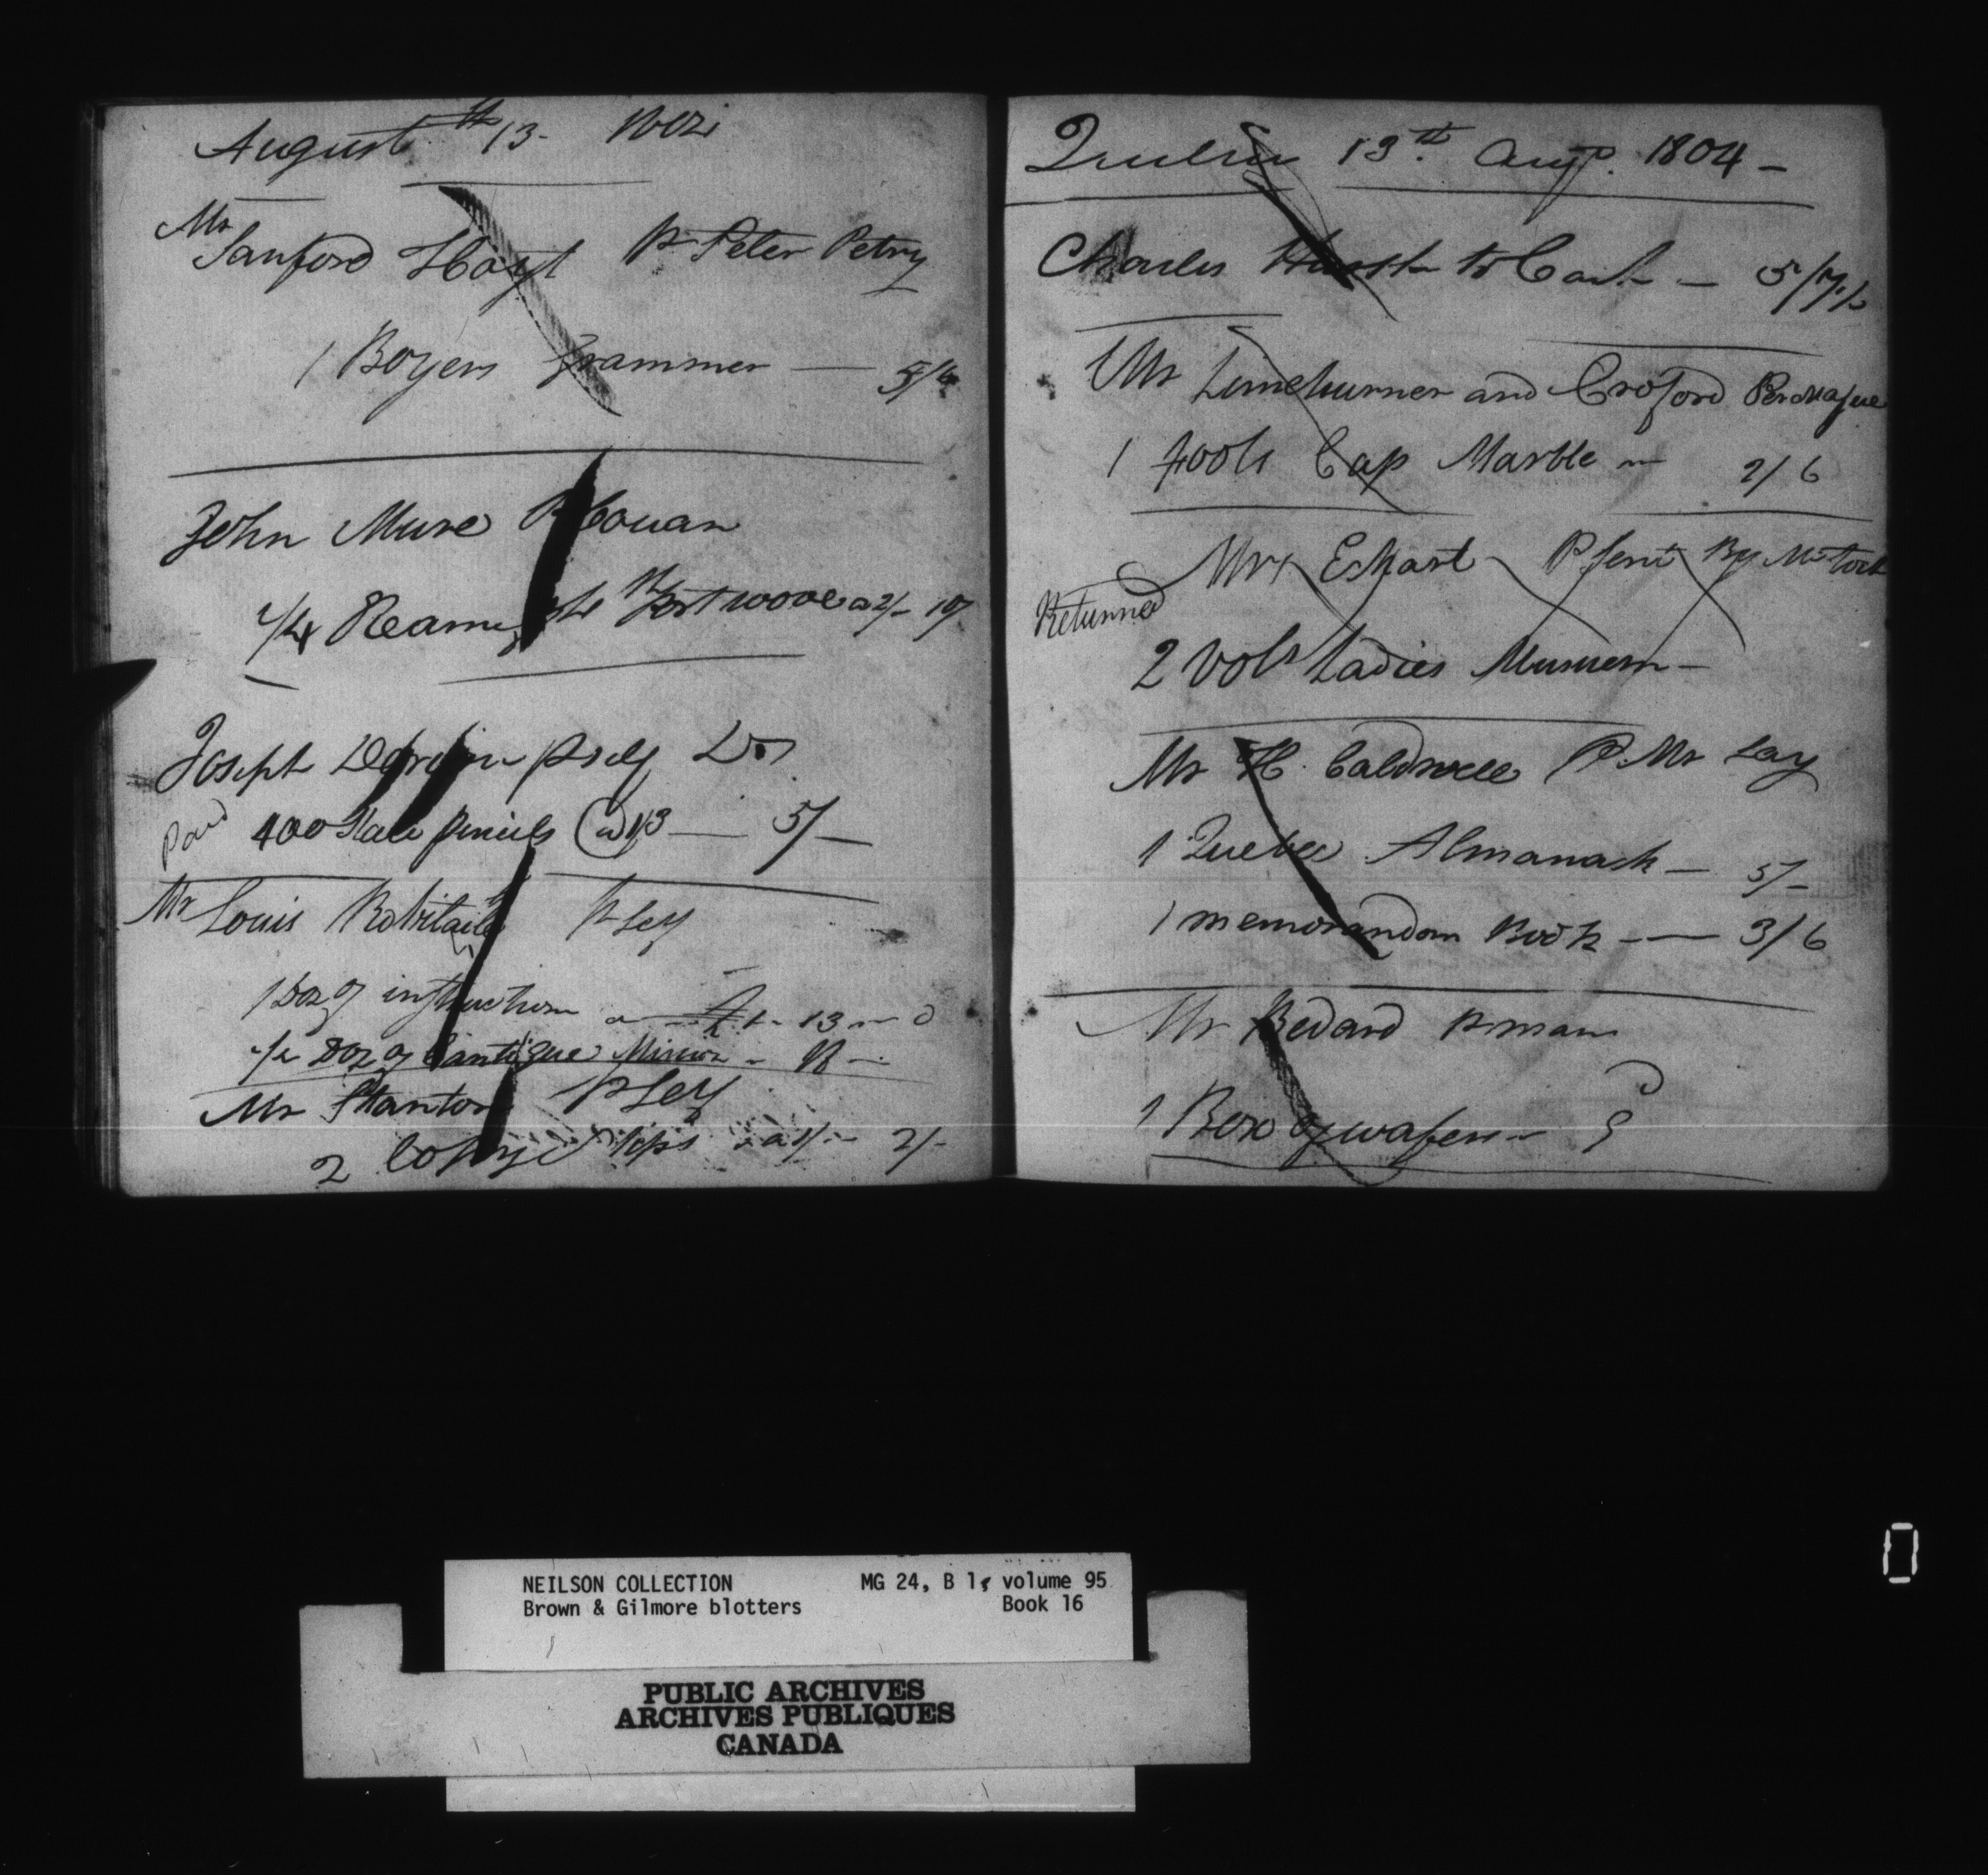 August 13th
Mr
Sanford Hoyt Pr Peter Petry
1 Boyers Grammer — 5/6
John Mure P Couan
1/4 Ream 10
Joseph Pr
Paid 400 Slate pencils @ 1/3 — 5/-
Mr Louis Robitaille Pr Ley
1 Doz of instruction 13
1/2 Doz of Cantique Mission
Mr Stanton Pr Ley
2 Copye Slips a 1/- 2/-
Quebec 13th Augt. 1804 -
Charles to Cash — 5/7 1/2
Mr Limeburner and Croford Per
1 fools Cap Marble 2/6
Mrs Eckart P sent By Mr
Returned
2 Vols Ladies Museum -
Mr H. Caldwell P. Mr Lay
1 Quebec Almanack - 5/-
1 memorandom Book - — 3/6
Mr Bedard Pr man
1 Box of wafers - 9
NEILSON COLLECTION MG 24, B 1, volume 95
Brown & Gilmore blotters Book 16
PUBLIC ARCHIVES
ARCHIVES PUBLIQUES
CANADA
0